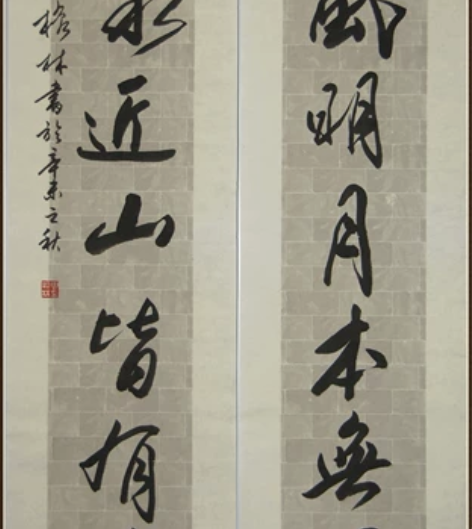 風明月本無
水近山皆有
林書於辛未之秋